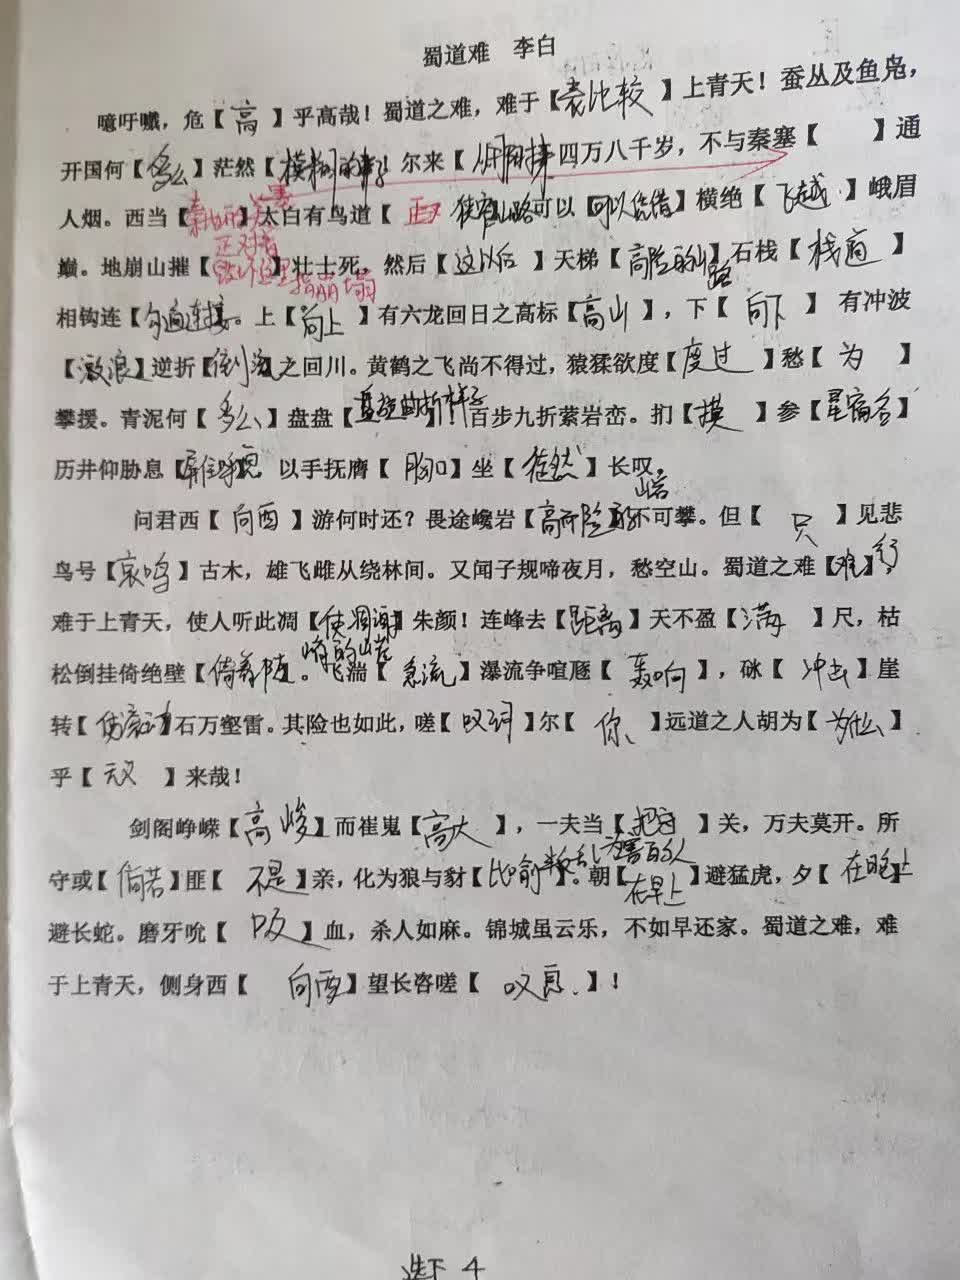 蜀道难 李白
噫吁嚱，危【高】乎高哉！蜀道之难，难于【表比较】上青天！蚕丛及鱼凫，
开国何【多么】茫然【模糊的样】！尔来【 】四万八千岁，不与秦塞【 】通
人烟。西当【 】太白有鸟道【 】横绝【飞越】峨眉
正对着
巅。地崩山摧【 】壮士死，然后【这以后】天梯【高险的山路】石栈【栈道】
指崩塌
相钩连【勾通连接】。上【向上】有六龙回日之高标【高山】，下【向下】有冲波
【激浪】逆折【倒流】之回川。黄鹤之飞尚不得过，猿猱欲度【度过】愁【为】
攀援。青泥何【多么】盘盘【盘旋曲折样子】！百步九折萦岩峦。扪【摸】参【星宿名】
历井仰胁息【屏住呼吸】，以手抚膺【胸口】坐【徒然】长叹。
问君西【向西】游何时还？畏途巉岩【高而险 山岩】不可攀。但【只】见悲
鸟号【哀鸣】古木，雄飞雌从绕林间。又闻子规啼夜月，愁空山。蜀道之难【难行】，
难于上青天，使人听此凋【使凋谢】朱颜！连峰去【距离】天不盈【满】尺，枯
松倒挂倚绝壁【倚着 】。飞湍【急流】瀑流争喧豗【轰响】，砯【冲击】崖
转【使滚动】石万壑雷。其险也如此，嗟【叹词】尔【你】远道之人胡为【为什么】
乎【无义】来哉！
剑阁峥嵘【高峻】而崔嵬【高大】，一夫当【把守】关，万夫莫开。所
守或【倘若】匪【不是】亲，化为狼与豺【比喻 】。朝【在早上】避猛虎，夕【在晚上】
避长蛇。磨牙吮【吸】血，杀人如麻。锦城虽云乐，不如早还家。蜀道之难，难
于上青天，侧身西【向西】望长咨嗟【叹息】！
选下 4